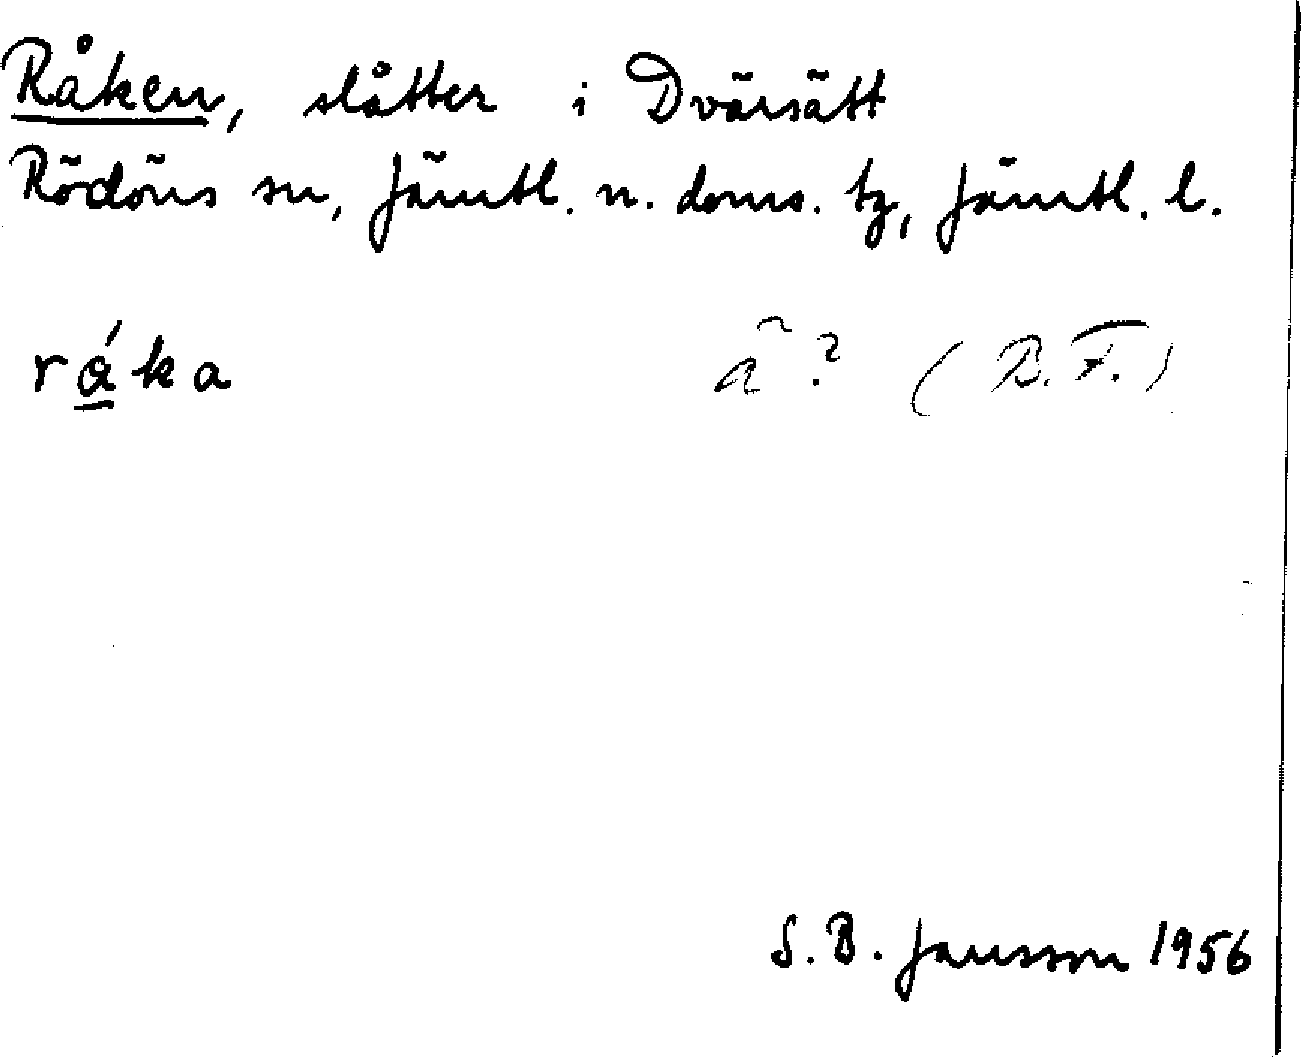 Råken, slåtter i Dvärsätt
Rödöns sn, Jämtl. n. doms. tg, Jämtl. l.
ráka ã? (R.F.)
S. B. Jansson 1956